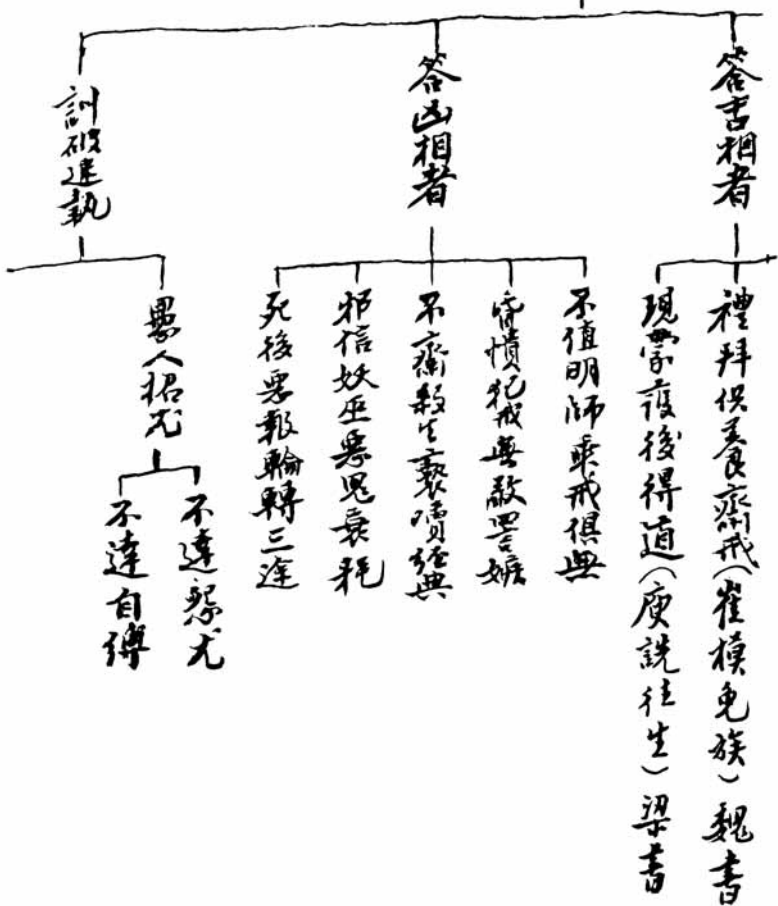 答吉相者
禮拜供養齋戒（崔模免族）魏書
現蒙護後得道（庾詵往生）梁書
答凶相者
不值明師乘戒俱無
昏憒犯戒無敬詈嫉
不齋殺生褻瀆經典
邪信妖巫惡鬼衰耗
死後惡報輪轉三途
訓破迷執
愚人招尤
不達怨尤
不達自縛